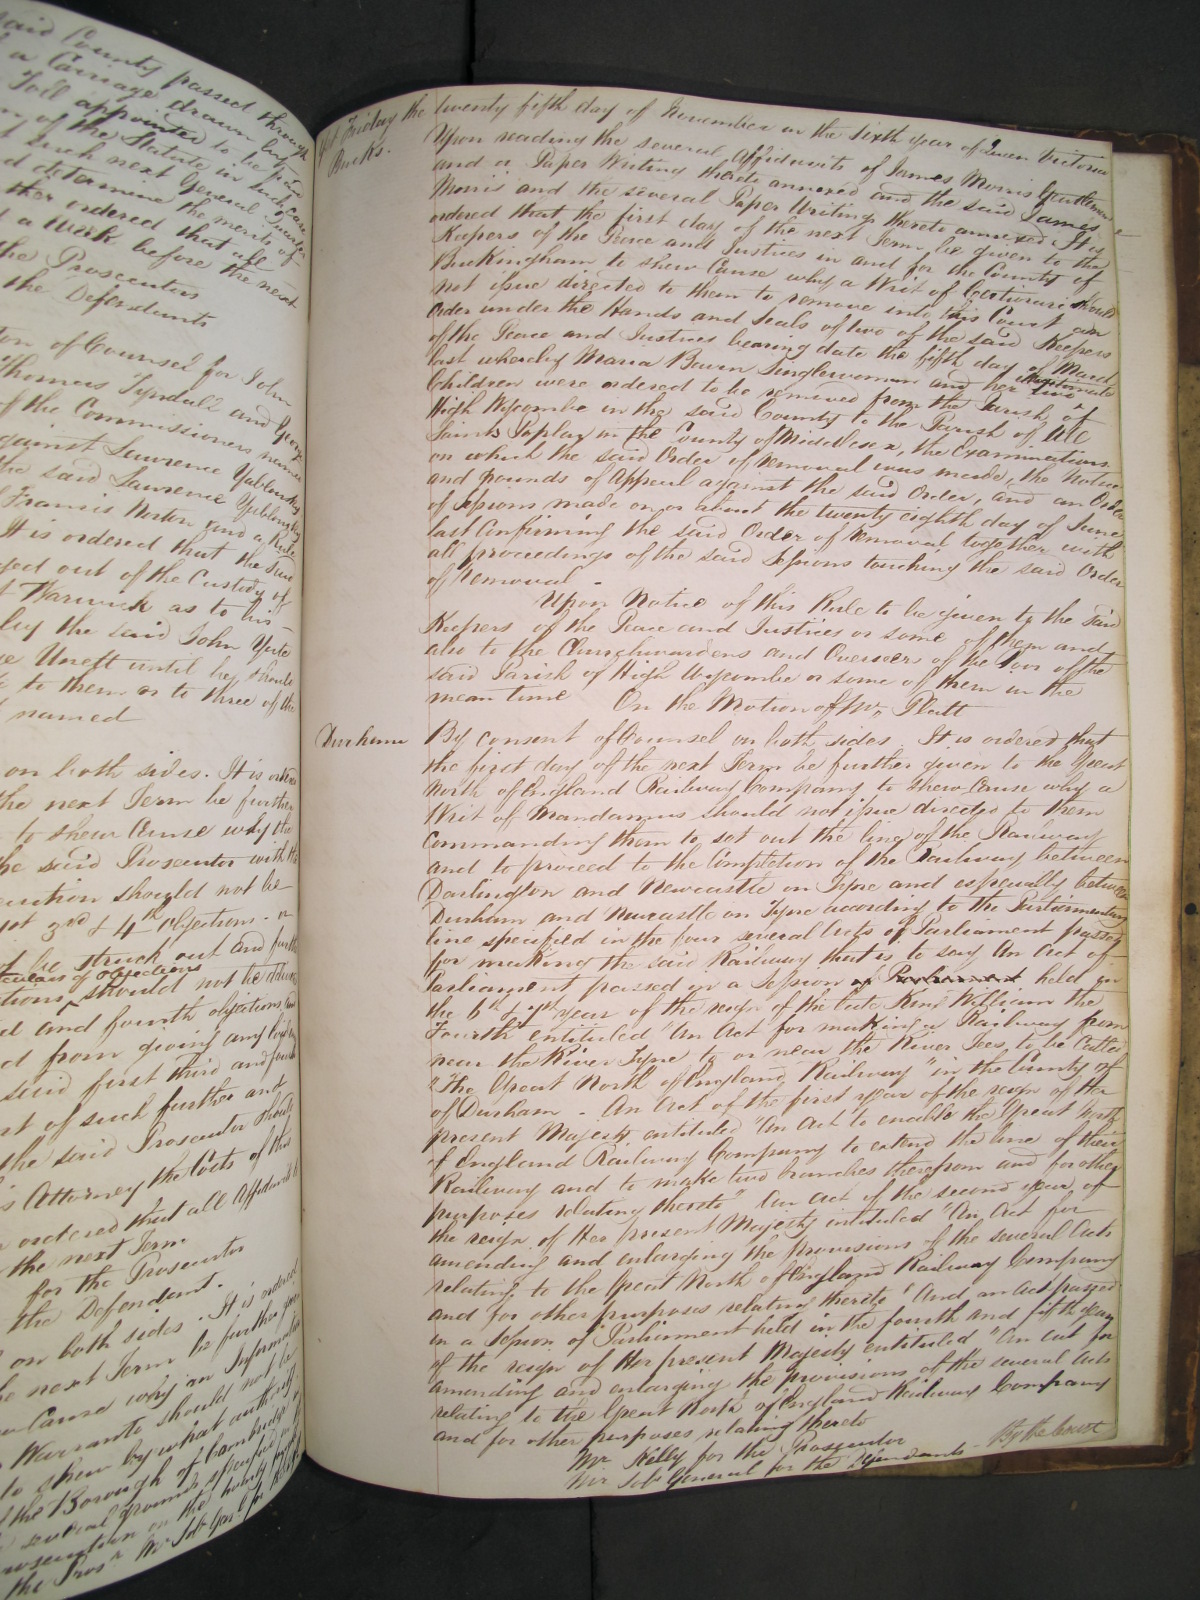 said County passed through
a Carriage drawn by
Toll appointed to be paid
of the Statute in such case
such next General Quarter
determine the merits of
ther ordered that all
a Week before the next
the Prosecutors
the Defendants
on of Counsel for John
Thomas Tyndall and George
of the Commissioners named
against Lawrence
the said Lawrence
Francis Norton and a Rule
It is ordered that the said
out of the Custody of
Warwick as to his
by the said John
until he should
to them or to three of the
named
on both sides. It is ordered
the next Term be further
to shew Cause why the
the said Prosecutor with the
should not be
1st 3rd & 4th objections - or
be struck out and further
objections
should not be
and fourth objections and
from giving any
said first third and fourth
of such further and
the said Prosecutor should
Attorney the Costs of this
ordered that all Affidavits
the next Term
for the Prosecutor
the Defendant.
on both sides. It is ordered
next Term be further given
Cause why an Information
Warranto should not be
to shew by what authority
the Borough of Cambridge
several grounds specified in
prosecution on the
the Prosr. Mr Solr Genl for
Friday the twenty fifth day of November in the Sixth year of Queen Victoria
Bucks.
Upon reading the several Affidavits of James Morris Gentleman
and a Paper Writing thereto annexed and the said James
Morris and the several Paper Writings thereto annexed It is
ordered that the first day of the next Term be given to the
Keepers of the Peace and Justices in and for the County of
Buckingham to shew Cause why a Writ of Certiorari should
not issue directed to them to remove into this Court an
Order under the Hands and Seals of two of the said Keepers
of the Peace and Justices bearing date the fifth day of March
last whereby Maria Bowen Singlewoman and her two illegitimate
Children were ordered to be removed from the Parish of
High Wycombe in the said County to the Parish of All
Saints Poplar in the County of Middlesex, the Examinations
on which the said Order of removal was made, the Notice
and grounds of Appeal against the said Order, and an Order
of Sessions made on or about the twenty eighth day of June
last Confirming the said Order of removal together with
all proceedings of the said Sessions touching the said Order
of removal -
Upon Notice of this Rule to be given to the said
Keepers of the Peace and Justices or some of them and
also to the Churchwardens and Overseers of the Poor of the
said Parish of High Wycombe or some of them in the
mean time On the Motion of Mr. Platt
Durham By consent of Counsel on both sides It is ordered that
the first day of the next Term be further given to the Great
North of England Railway Company to shew Cause why a
Writ of Mandamus should not issue directed to them
Commanding them to set out the line of the Railway
and to proceed to the Completion of the Railway between
Darlington and Newcastle on Tyne and especially between
Durham and Newcastle on Tyne according to the Parliamentary
line specified in the four several Acts of Parliament passed
for making the said Railway that is to say An Act of
Parliament passed in a Session of Parliament held in
the 6th & 7th year of the reign of the late King William the
Fourth entituled "An Act for making a Railway from
near the River Tyne to or near the River Tees, to be Called
"The Great North of England Railway" in the County of
of Durham - An Act of the first year of the reign of Her
present Majesty entituled "An Act to enable the Great North
of England Railway Company to extend the line of their
Railway and to make two branches therefrom and for other
purposes relating thereto" An act of the second year of
the reign of Her present Majesty intituled "An Act for
amending and enlarging the provisions of the several Acts
relating to the Great North of England Railway Company
and for other purposes relating thereto" And an act passed
in a Session of Parliament held in the fourth and fifth years
of the reign of Her present Majesty entituled "An act for
amending and enlarging the provisions of the several Acts
relating to the Great North of England Railway Company
and for other purposes relating thereto
Mr Kelly for the Prosecutor
Mr Solr General for the Defendants - By the Court